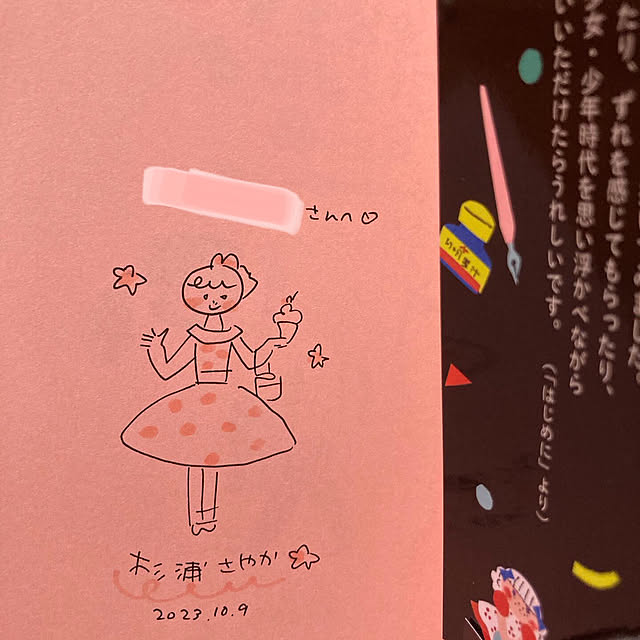 さんへ♡
杉浦 さやか
2023.10.9
たり、ずれを感じてもらったり、
少女・少年時代を思い浮かべながら
いいただけたらうれしいです。
(「はじめに」より)